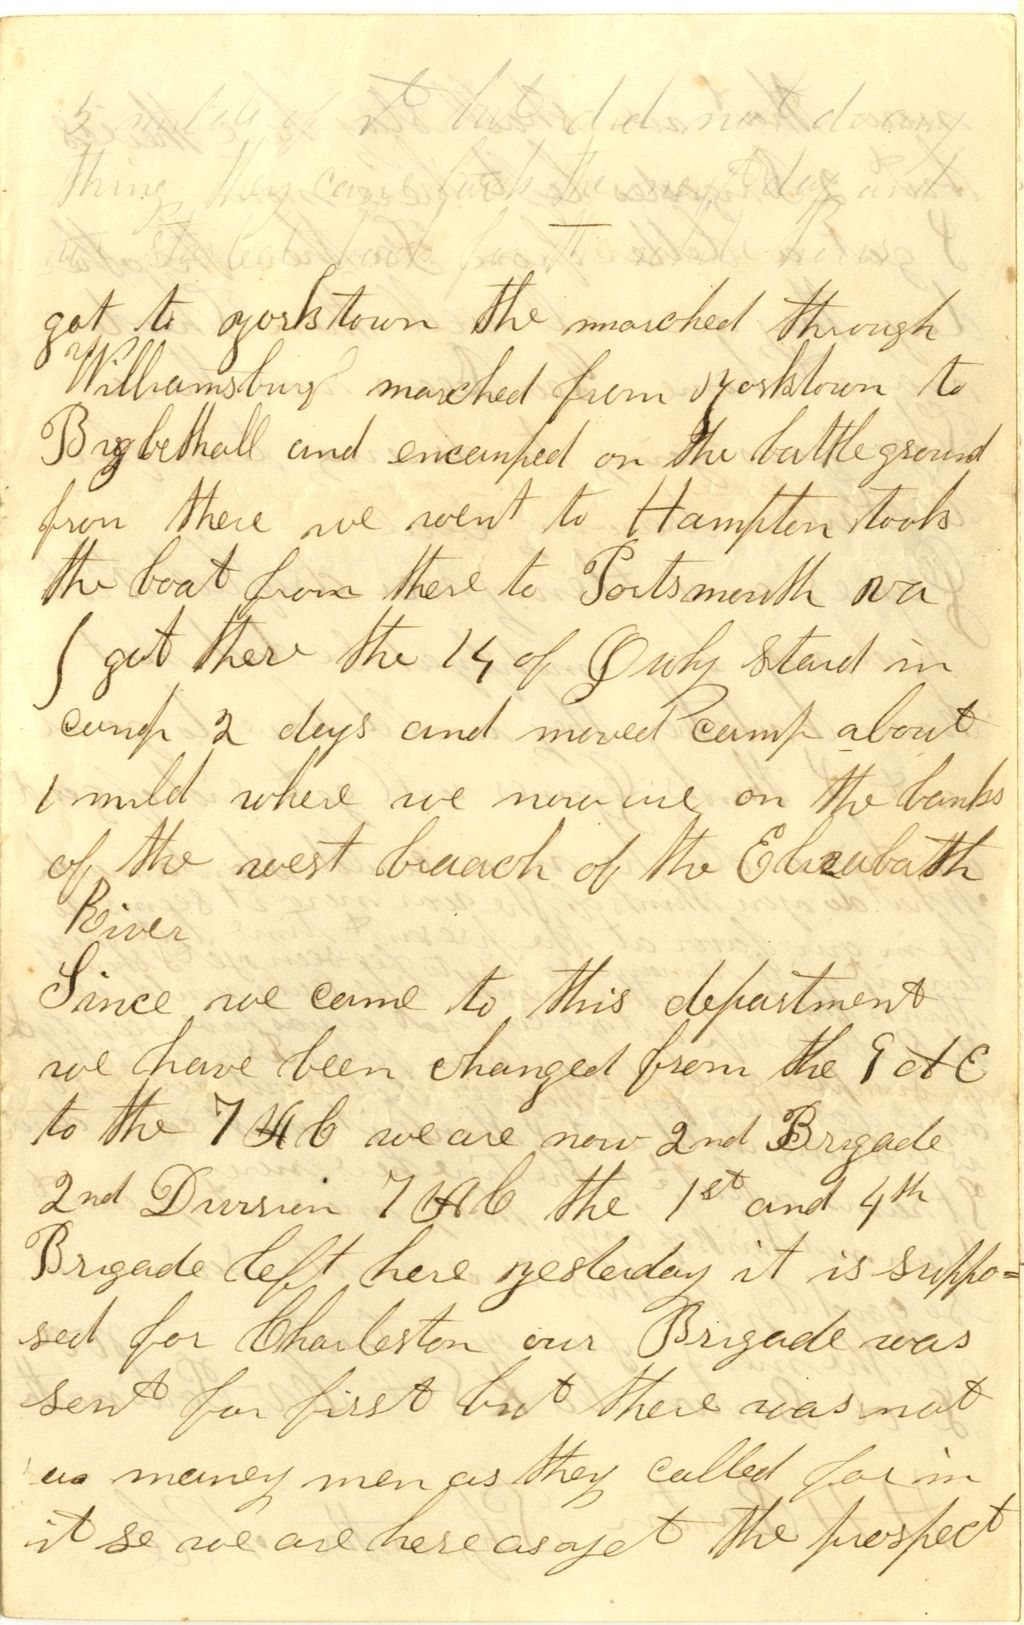 5 miles of it but did not do any
thing they came back the next day and
we started back for
got to yorkstown the marched through
Williamsburg marched from yorktown to
Bygbethall and encamped on the battleground
from there we went to Hampton took
the boat from there to Portsmouth va
I got there the 14 of July staid in
camp 2 days and moved camp about
1 mild where we now are on the banks
of the west braach of the Elizabath
River
Since we came to this department
we have been changed from the 9 A C
to the 7 A C we are now 2nd Brigade
2nd Division 7 A C the 1st and 4th
Brigade left here yesterday it is suppo=
sed for Charleston our Brigade was
sent for first but there was not
as maney men as they called for in
it se we are here as yet the prospect